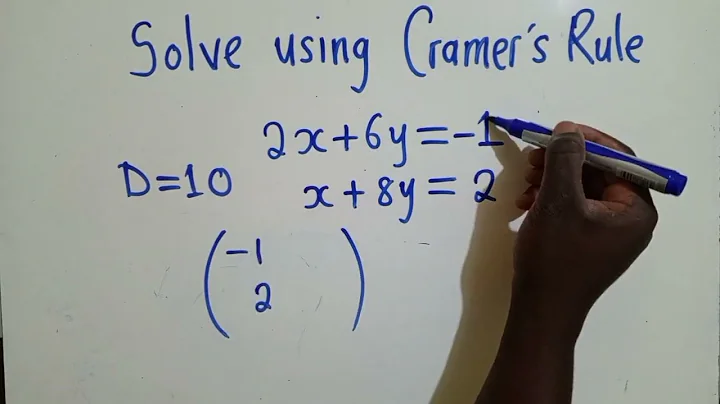 Solve using Cramer's Rule
2x+6y=-1
D=10
x+8y=2
(-1
2)